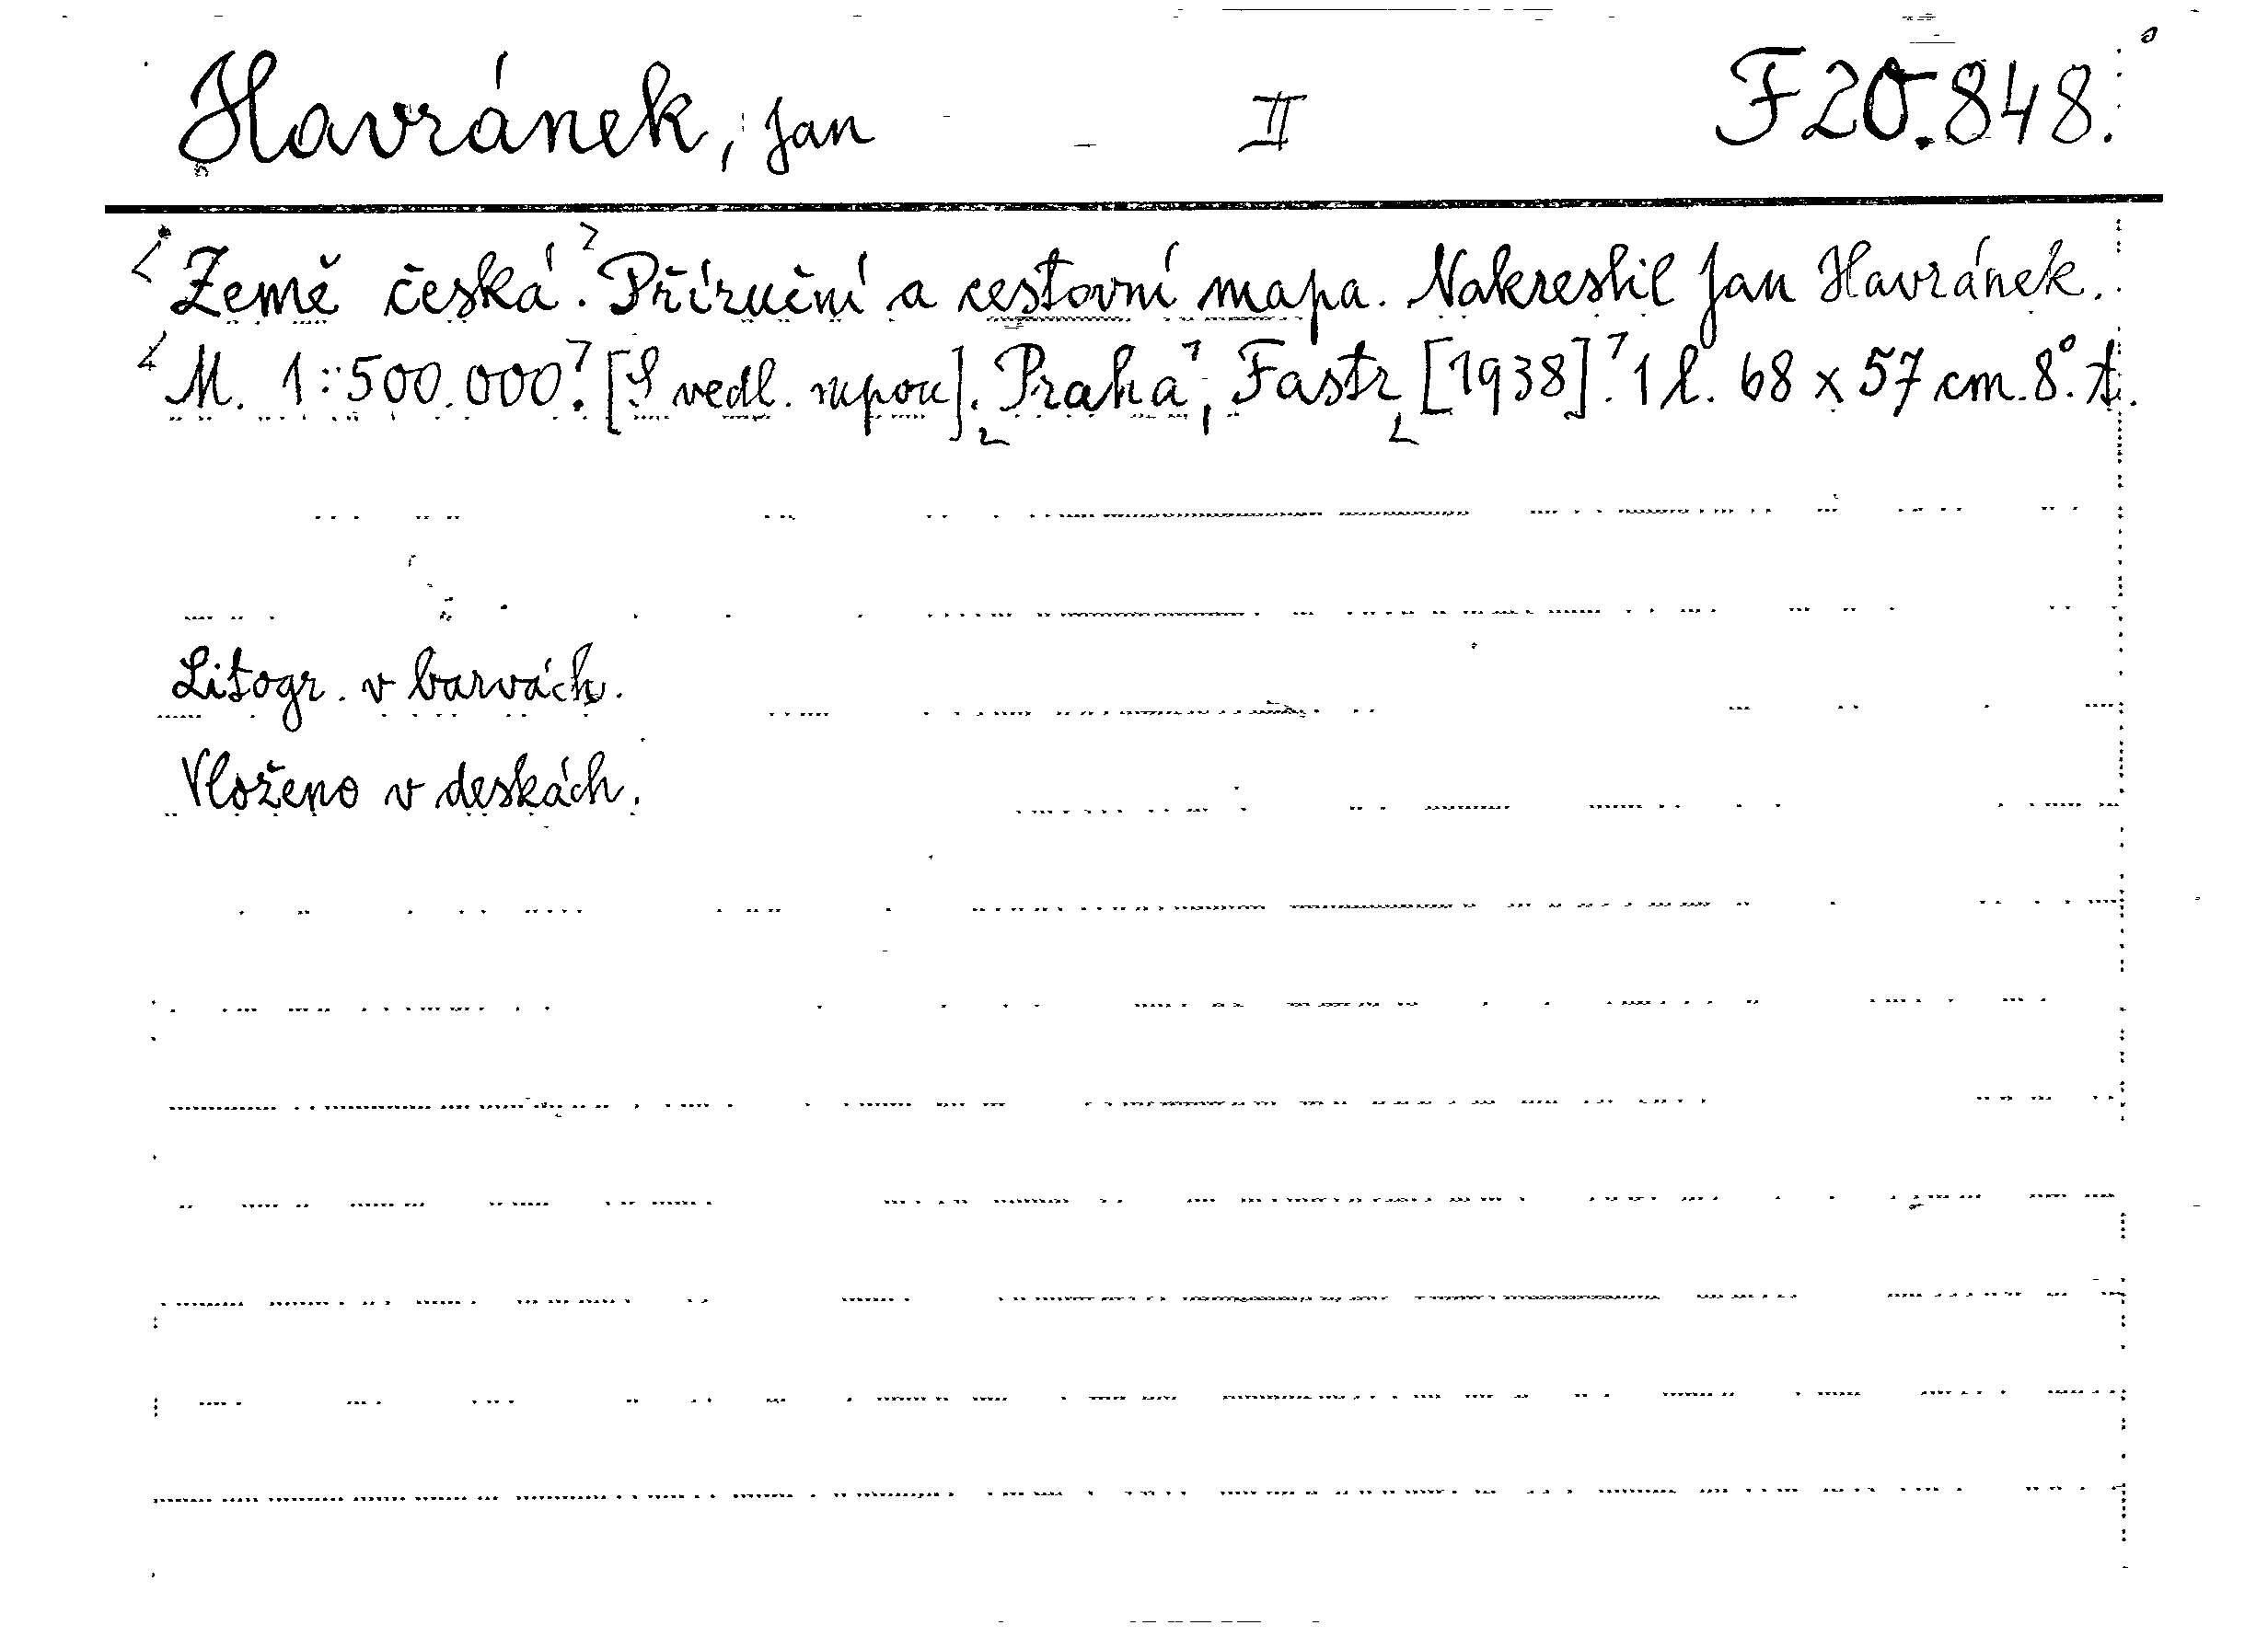 Havránek, Jan II F 20.848.
Země česká. Příruční a cestovní mapa. Nakreslil Jan Havránek.
M. 1:500.000. [S vedl. mapou]. Praha, Fastr [1938]. 1 l. 68 x 57 cm. 8°. A.
Litogr. v barvách.
Vloženo v deskách.